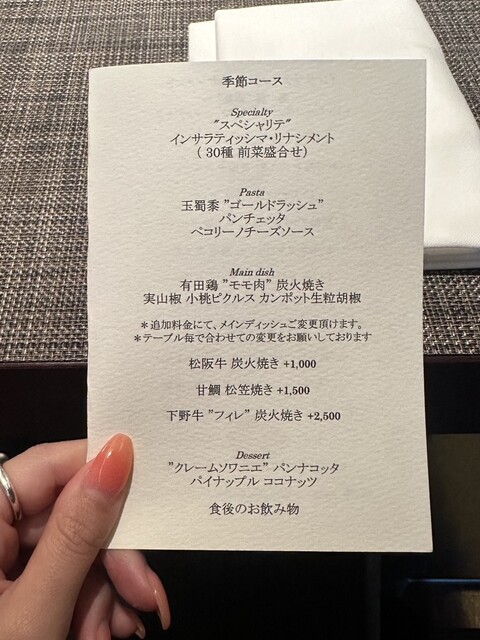 季節コース
Specialty
"スペシャリテ"
インサラティッシマ・リナシメント
( 30種 前菜盛合せ)
Pasta
玉蜀黍 "ゴールドラッシュ"
パンチェッタ
ペコリーノチーズソース
Main dish
有田鶏 "モモ肉" 炭火焼き
実山椒 小桃ピクルス カンポット生粒胡椒
＊追加料金にて、メインディッシュご変更頂けます。
＊テーブル毎で合わせての変更をお願いしております
松阪牛 炭火焼き +1,000
甘鯛 松笠焼き +1,500
下野牛 "フィレ" 炭火焼き +2,500
Dessert
"クレームソワニエ" パンナコッタ
パイナップル ココナッツ
食後のお飲み物